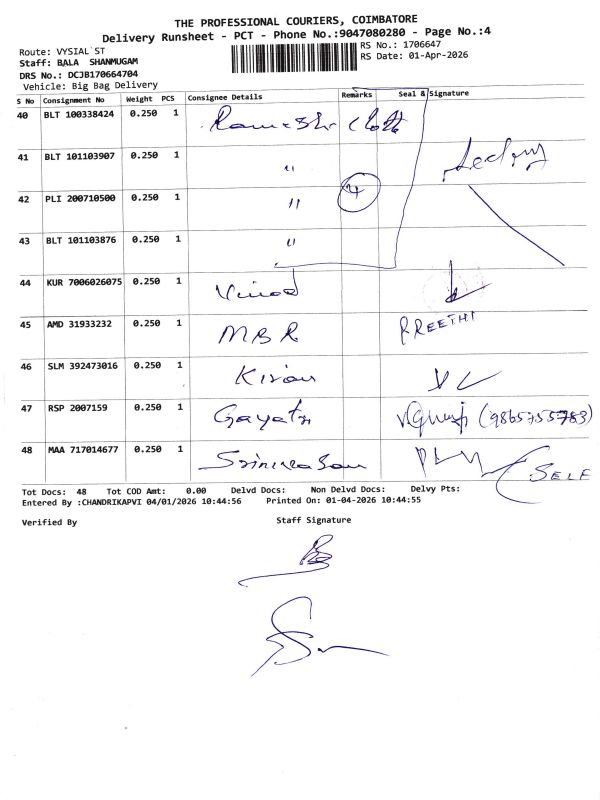 THE PROFESSIONAL COURIERS, COIMBATORE
Delivery Runsheet - PCT - Phone No.:9047080280 - Page No.:4
Route: VYSIAL ST
RS No.: 1706647
Staff: BALA SHANMUGAM
RS Date: 01-Apr-2026
DRS No.: DCJB170664704
Vehicle: Big Bag Delivery
S No Consignment No Weight PCS Consignee Details Remarks Seal & Signature
40 BLT 100338424 0.250 1 Ramesh Cloth
41 BLT 101103907 0.250 1 "
42 PLI 200710500 0.250 1 " 4
43 BLT 101103876 0.250 1 "
44 KUR 7006026075 0.250 1 Vinod
45 AMD 31933232 0.250 1 MBR PREETHI
46 SLM 392473016 0.250 1 Kiran
47 RSP 2007159 0.250 1 Gayatri (9865755783)
48 MAA 717014677 0.250 1 Srinivasan SELF
Tot Docs: 48 Tot COD Amt: 0.00 Delvd Docs: Non Delvd Docs: Delvy Pts:
Entered By :CHANDRIKAPVI 04/01/2026 10:44:56 Printed On: 01-04-2026 10:44:55
Verified By Staff Signature